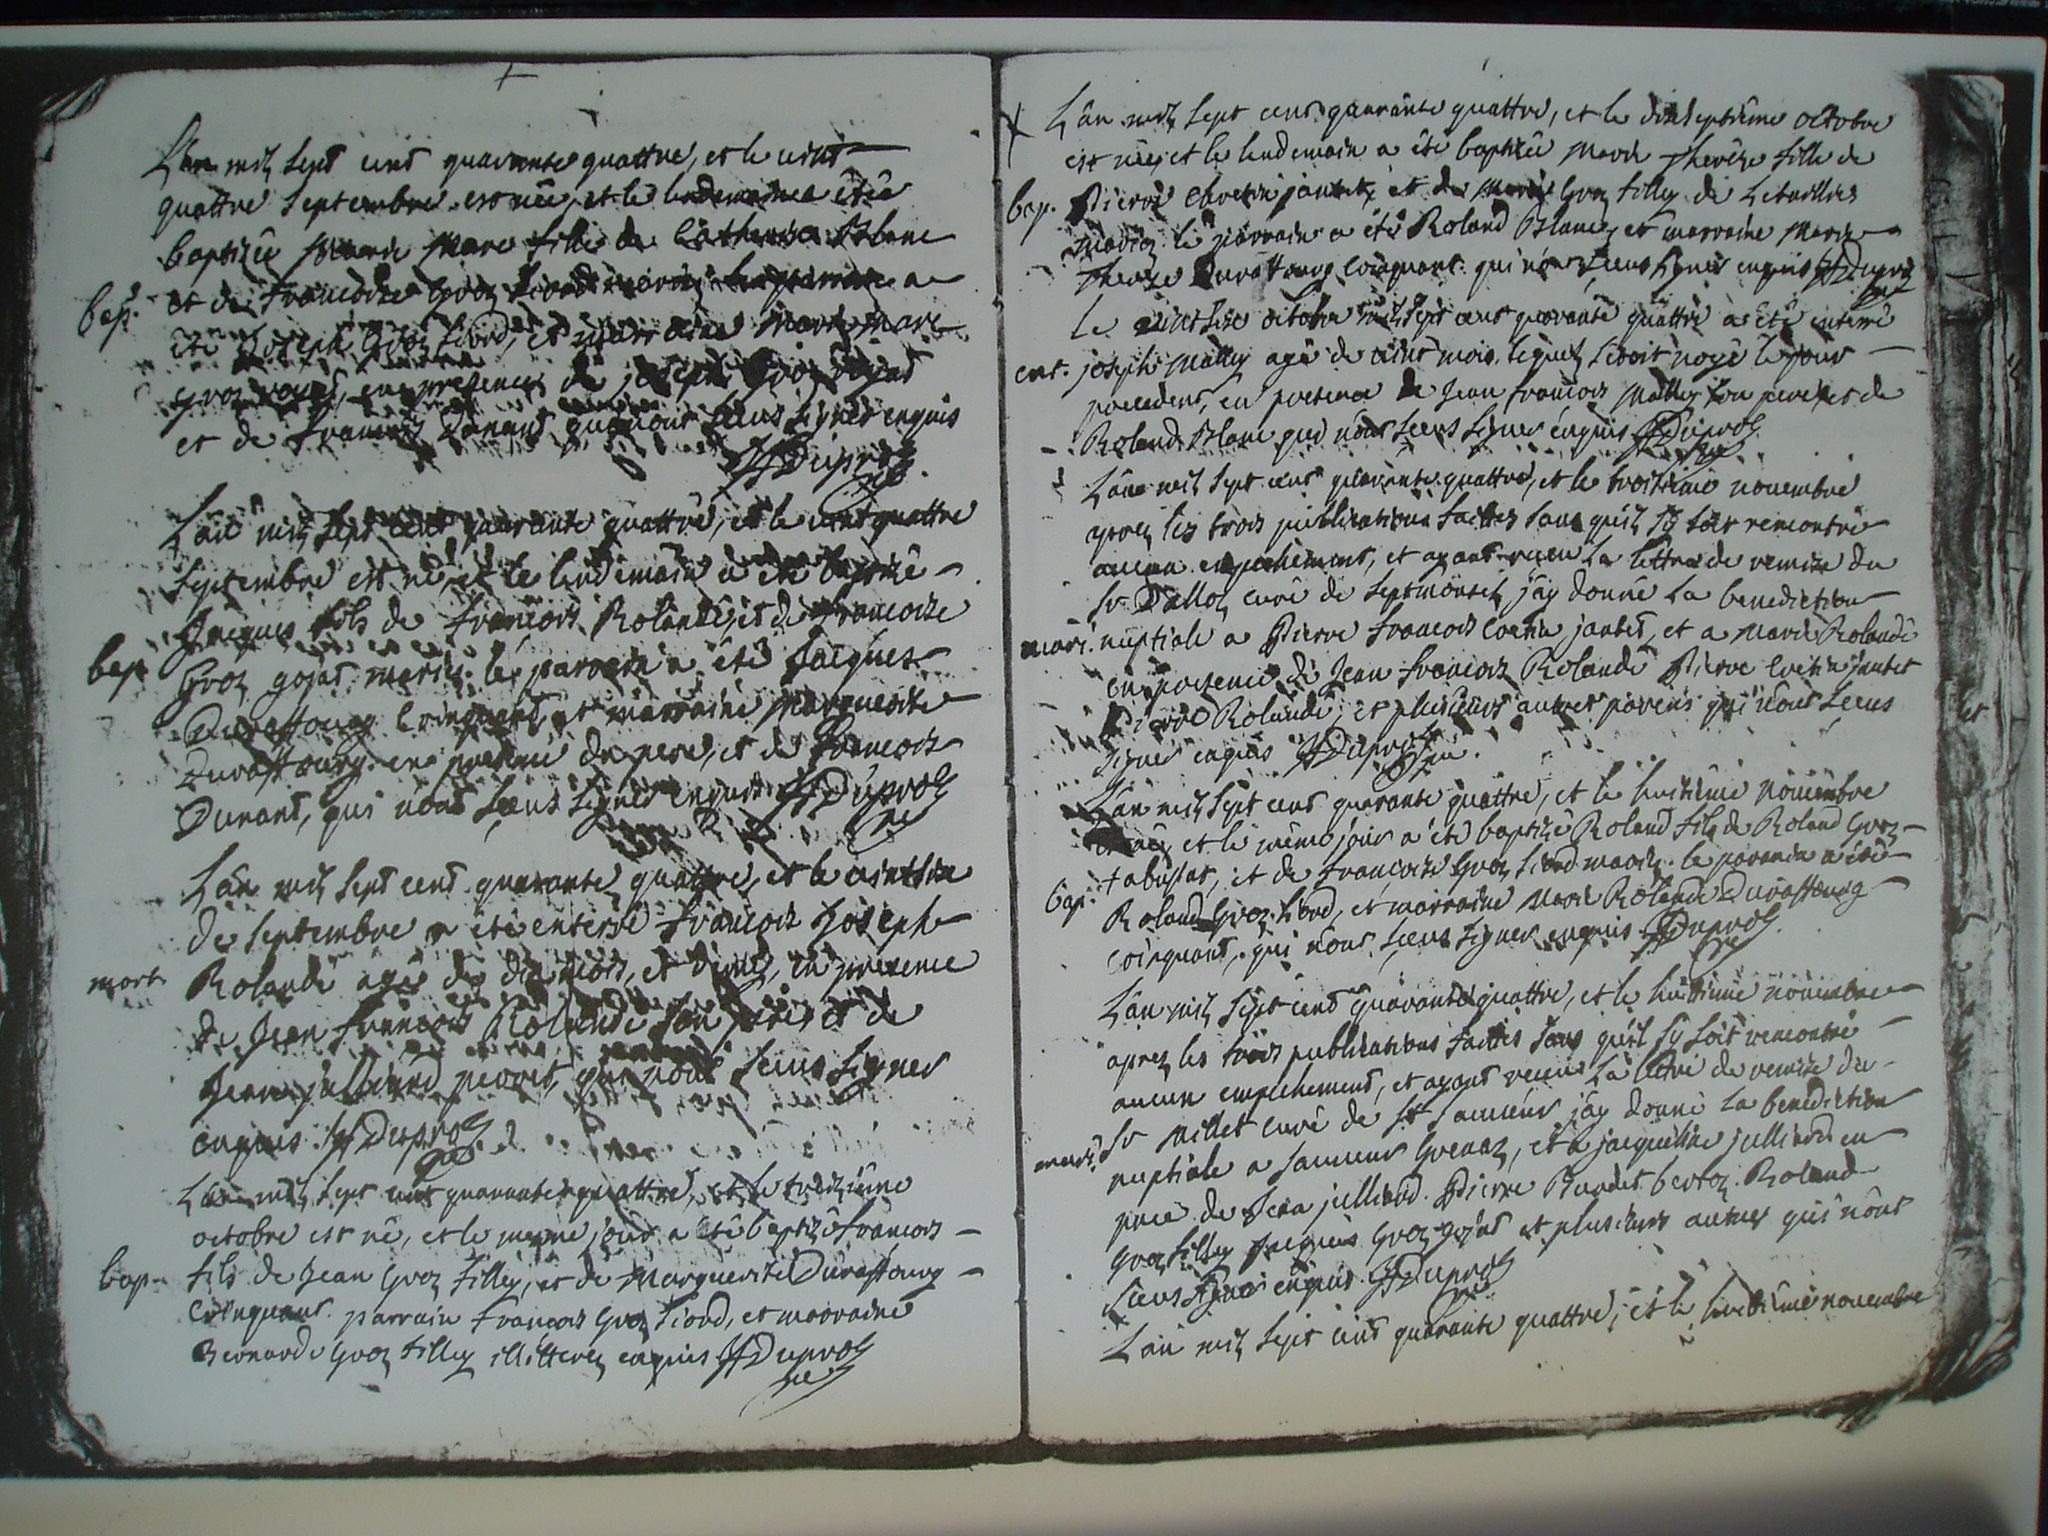 L'an mil sept cent quarante quattre, et le vint
quattre septembre est née, et le lendemain a étée
baptizée Marie Marc fille de Catherin Blanc
bap. et de francoise Groz
été Joseph Groz siord, et marraine Marie Marc
Groz gojat, en presence de joseph Groz gojat
et de francois Durant qui n'ont sceus signer enquis
JfDuproz
L'an mil sept cent quarante quattre, et le vint quattre
septembre est né, et le lendemain a été baptizé
Jacques fils de francois Rolandé, et de francoise
bap. Groz gojat mariez. le parrain a été Jacques
Duraffourg Coinquant, et marraine Marguerite
Duraffourg. en presence du pere, et de francois
Durant, qui n'ont sceus signer enquis JfDuproz
L'an mil sept cent quarante quattre et le vint
de septembre a été enterré francois Joseph
mort Rolandé agé de dix mois, et demy, en presence
de Jean francois Rolandé son pere, et de
Jean julliard perret, qui n'ont sceus signer
enquis JfDuproz
L'an mil sept cent quarante quattre, et le treizieme
octobre est né, et le meme jour a été baptizé francois
bap. fils de Jean Groz filley, et de Marguerite Duraffourg
Coinquant. parrain francois Groz siord, et marraine
Bernarde Groz filley illitterez enquis JfDuproz
L'an mil sept cent quarante quattre, et le dixseptieme octobre
est née, et le lendemain a été baptizée Marie Therèze fille de
bap. Pierre Cretin jantet, et de Marie Groz filley de
mariez le parrain a été Roland Blanc, et marraine Marie
Thereze Duraffourg Coinquant. qui n'ont sceus signer enquis JfDuproz
Le octobre mil sept cent quarante quattre a été enterré
ent. joseph Mathey agé de mois lequel s'etoit noyé le jour
precedent, en presence de Jean francois Mathey son pere, et de
Roland Blanc qui n'ont sceus signer enquis JfDuproz
L'an mil sept cent quarante quattre, et le troisieme novembre
aprez les trois publications faittes sans qu'il s'y soit rencontré
aucun empechement, et ayant receu la lettre de remize du
Sr Dalloz curé de Septmoncel j'ay donné la benediction
mari. nuptiale a Pierre francois Cretin jantet, et a Marie Rolandé
en presence de Jean francois Rolandé Pierre Cretin jantet
Pierre Rolandé, et plusieurs autres parens qui n'ont sceus
signer enquis JfDuproz
L'an mil sept cent quarante quattre, et le huitieme novembre
est né, et le même jour a été baptizé Roland fils de Roland Groz
bap. tabussat, et de francoise Groz siord mariez. le parrain a été
Roland Groz siord, et marraine Marie Rolande Duraffourg
Coinquant, qui n'ont sceus signer enquis JfDuproz
L'an mil sept cent quarante quattre, et le huitieme novembre
aprez les trois publications faittes sans qu'il s'y soit rencontré
aucun empechement, et ayant receu la lettre de remize du
mari. Sr Millet curé de St Sauveur j'ay donné la benediction
nuptiale a Sauveur Grenaz, et a jacqueline julliard en
pnce de Jean julliard. Pierre Roland
Groz filley Jacques Groz gojat et plusieurs autres qui n'ont
sceus signer enquis JfDuproz
L'an mil sept cent quarante quattre, et le huitieme novembre